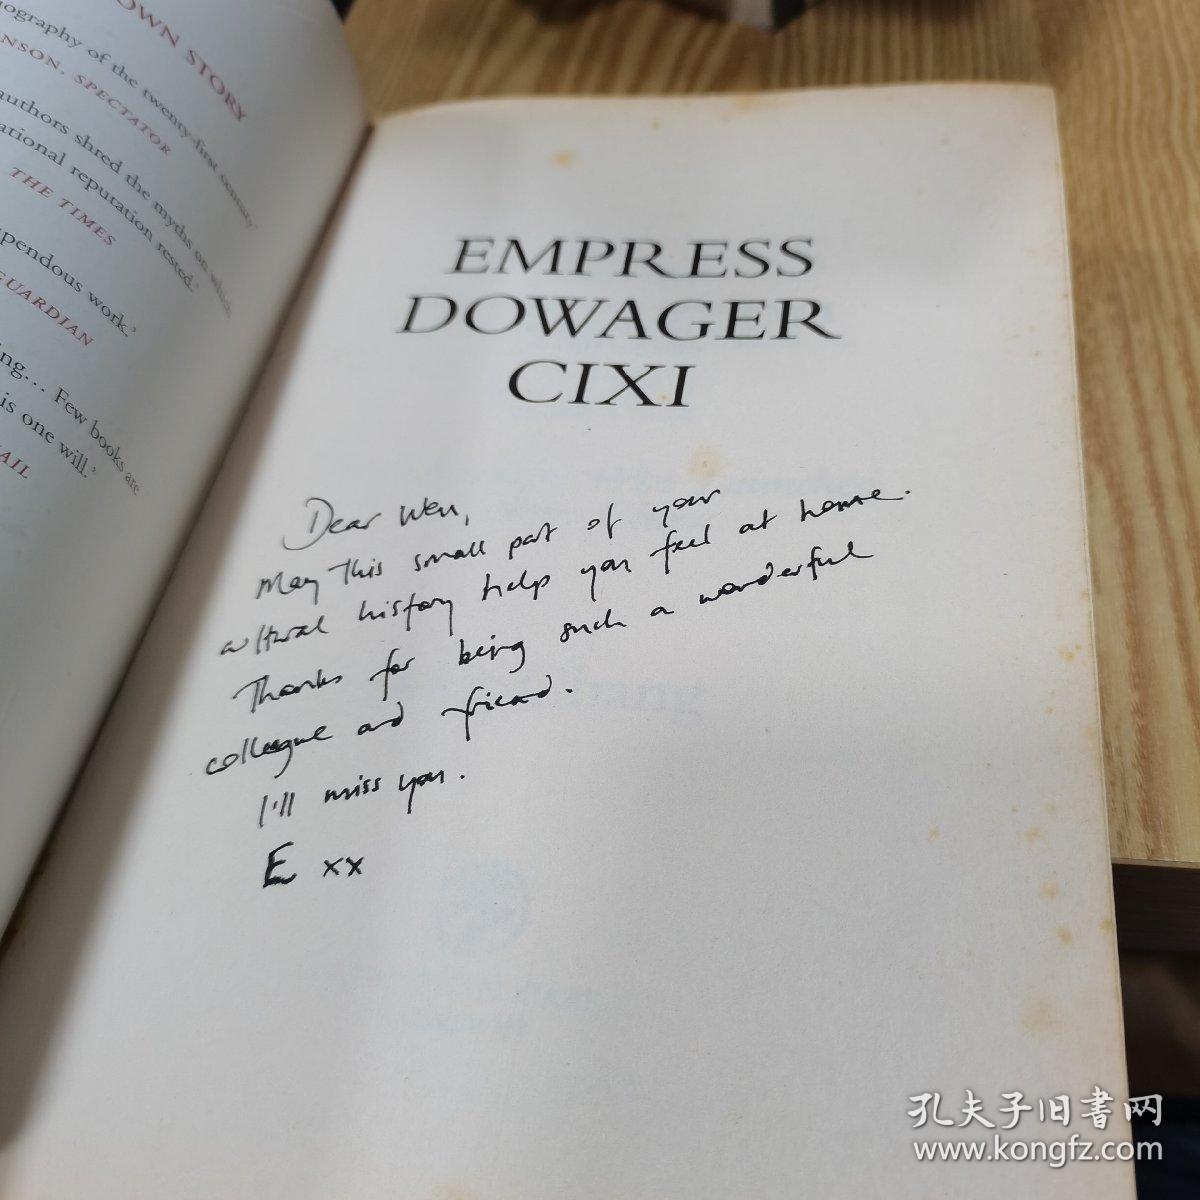 OWN STORY
ography of the twenty-first century.'
NSON, SPECTATOR
authors shred the myths on which
ational reputation rested.'
THE TIMES
pendous work.'
GUARDIAN
ing... Few books are
is one will.'
AIL
EMPRESS
DOWAGER
CIXI
Dear Wen,
May this small part of your
cultural history help you feel at home.
Thanks for being such a wonderful
colleague and friend.
I'll miss you.
E xx
孔夫子旧书网
www.kongfz.com